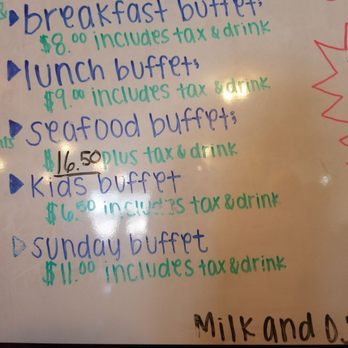 breakfast buffet:
$8.00 includes tax & drink
lunch buffet:
$9.00 includes tax & drink
seafood buffet:
$16.50 plus tax & drink
Kids buffet
$6.50 includes tax & drink
Sunday buffet
$11.00 includes tax & drink
Milk and O.J